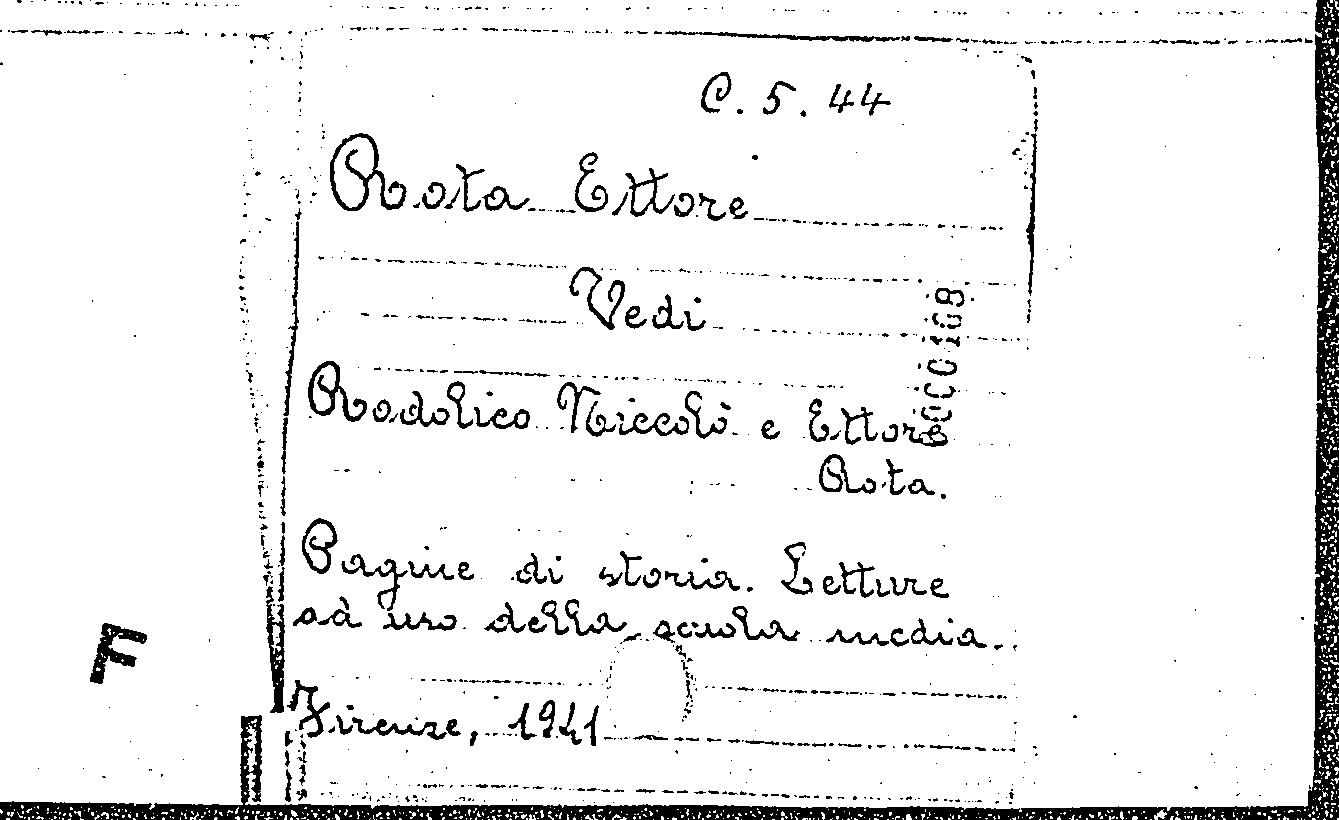 C. 5. 44
Rota Ettore
Vedi
Rodolico Niccolò e Ettore
Rota.
Pagine di storia. Letture
ad uso della scuola media.
Firenze, 1941
F